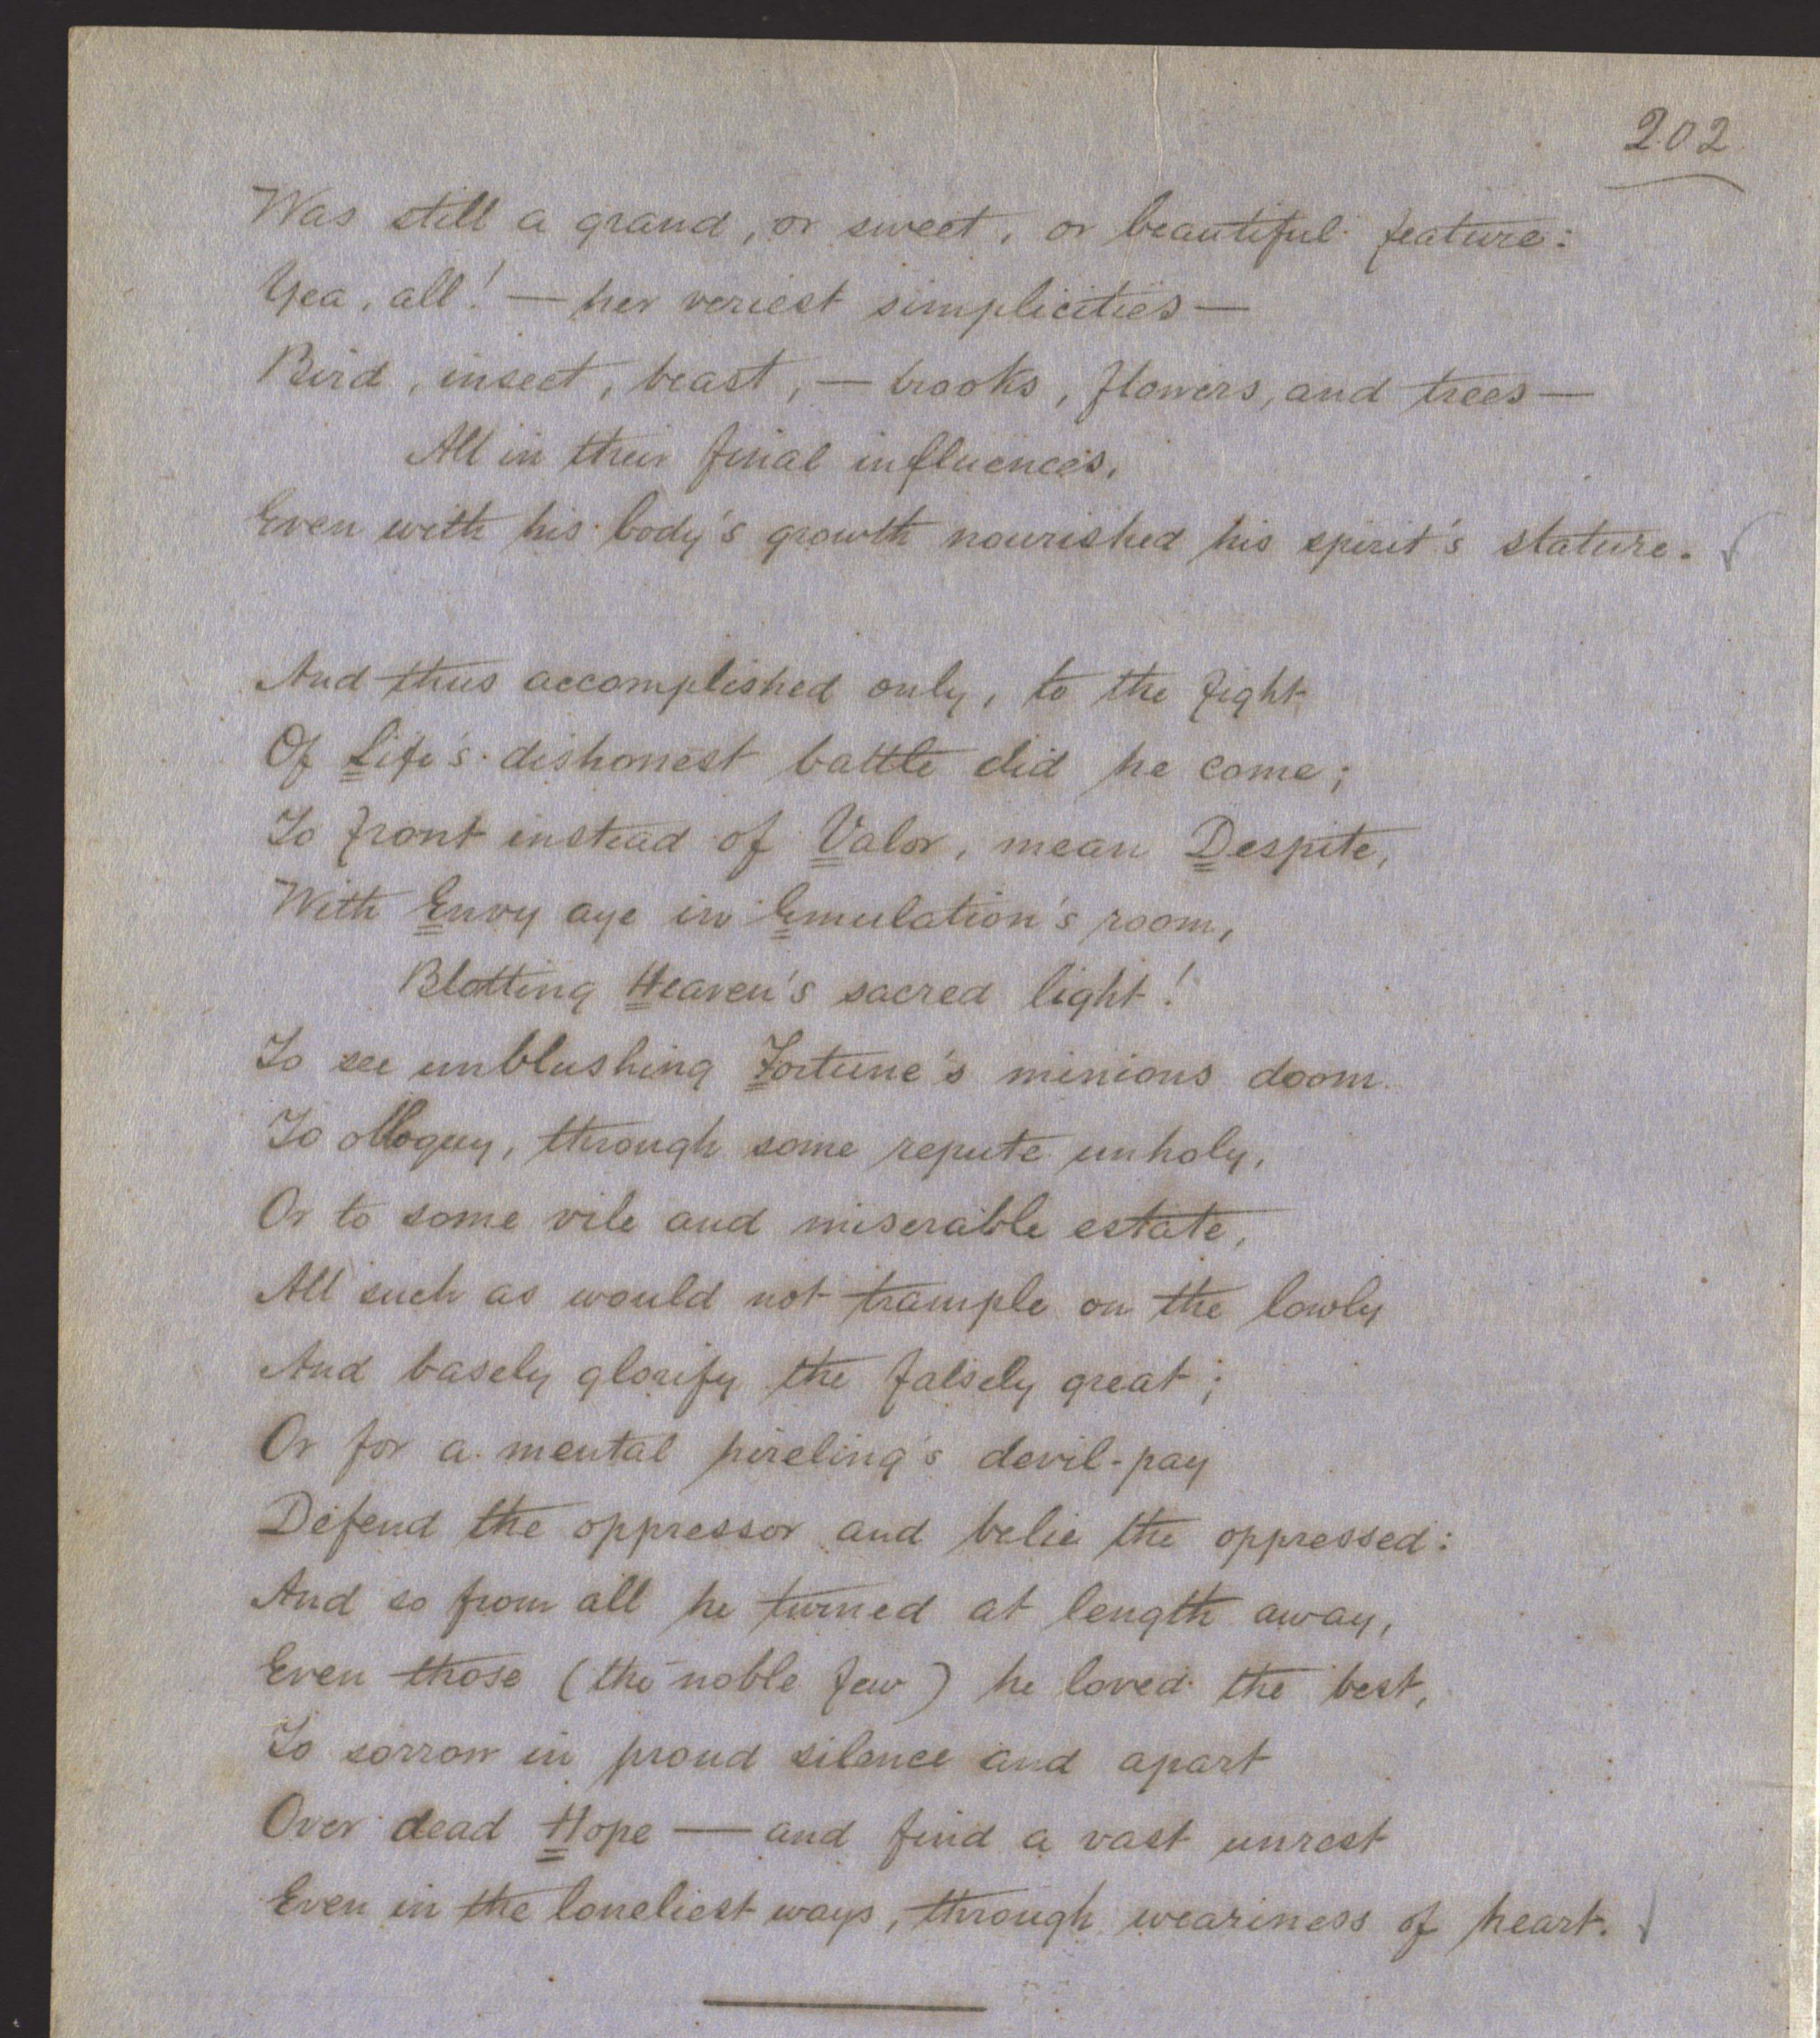 202
Was still a grand, or sweet, or beautiful feature:
Yea, all! — her veriest simplicities —
Bird, insect, beast, — brooks, flowers, and trees —
All in their final influences,
Even with his body's growth nourished his spirit's stature.
And thus accomplished only, to the fight
Of Life's dishonest battle did he come;
To front instead of Valor, mean Despite,
With Envy aye in Emulation's room,
Blotting Heaven's sacred light!
To see unblushing Fortune's minions doom
To obloquy, through some repute unholy,
Or to some vile and miserable estate,
All such as would not trample on the lowly
And basely glorify the falsely great;
Or for a mental hireling's devil-pay
Defend the oppressor and belie the oppressed:
And so from all he turned at length away,
Even those (the noble few) he loved the best,
To sorrow in proud silence and apart
Over dead Hope — and find a vast unrest
Even in the loneliest ways, through weariness of heart.